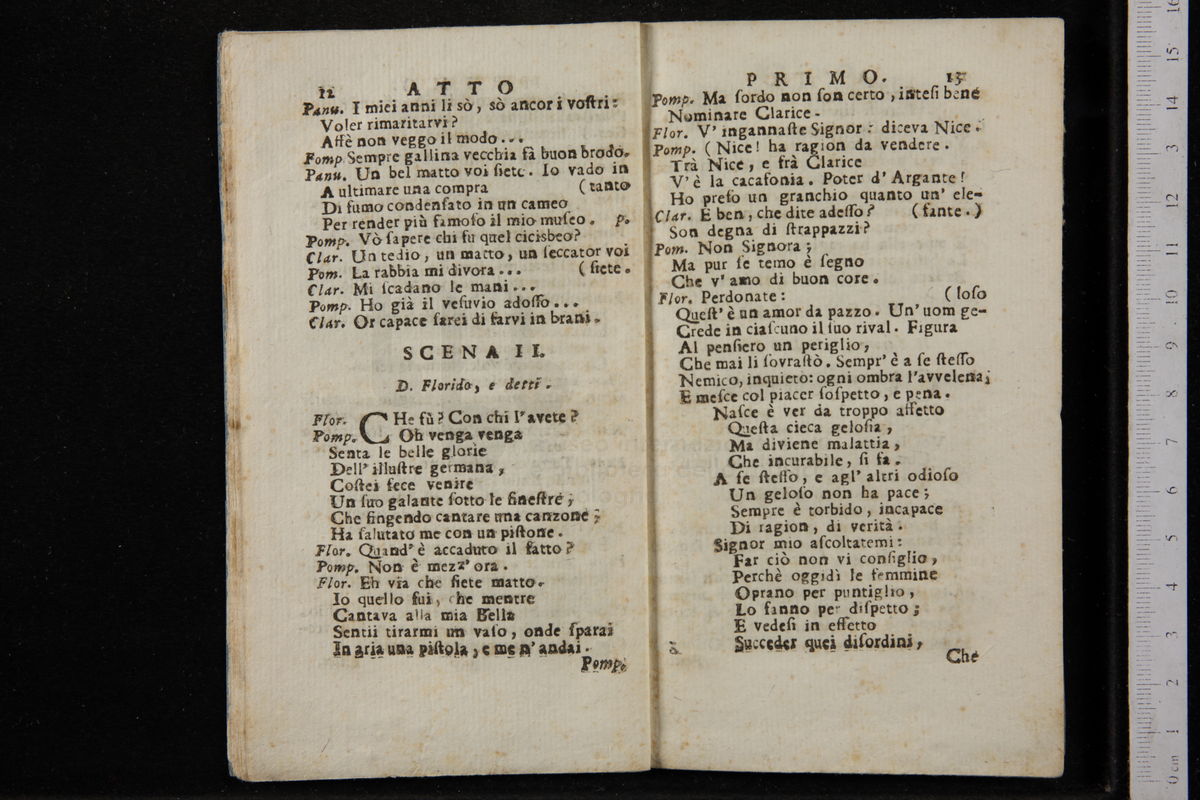 12 ATTO
Panu. I miei anni li sò, sò ancor i voſtri:
Voler rimaritarvi?
Affè non veggo il modo...
Pomp. Sempre gallina vecchia fà buon brodo.
Panu. Un bel matto voi ſiete. Io vado in
A ultimare una compra (tanto
Di fumo condenſato in un cameo
Per render più famoſo il mio muſeo. p.
Pomp. Vò ſapere chi fu quel cicisbeo?
Clar. Un tedio, un matto, un ſeccator voi
Pom. La rabbia mi divora... (ſiete.
Clar. Mi ſcadano le mani...
Pomp. Ho già il veſuvio adoſſo...
Clar. Or capace ſarei di farvi in brani.
SCENA II.
D. Florido, e detti.
Flor. CHe fù? Con chi l'avete?
Pomp. Oh venga venga
Senta le belle glorie
Dell' illuſtre germana,
Coſtei fece venire
Un ſuo galante ſotto le fineſtre;
Che fingendo cantare una canzone;
Ha ſalutato me con un piſtone.
Flor. Quand' è accaduto il fatto?
Pomp. Non è mezz' ora.
Flor. Eh via che ſiete matto.
Io quello fui, che mentre
Cantava alla mia Bella
Sentii tirarmi un vaſo, onde ſparai
In aria una piſtola, e me n' andai.
Pomp.
PRIMO. 13
Pomp. Ma ſordo non ſon certo, inteſi bene
Nominare Clarice.
Flor. V' ingannaſte Signor: diceva Nice.
Pomp. (Nice! ha ragion da vendere.
Trà Nice, e frà Clarice
V' è la cacafonia. Poter d' Argante!
Ho preſo un granchio quanto un' ele-
Clar. E ben, che dite adeſſo? (fante.)
Son degna di ſtrappazzi?
Pom. Non Signora;
Ma pur ſe temo è ſegno
Che v' amo di buon core.
Flor. Perdonate: (loſo
Queſt' è un amor da pazzo. Un' uom ge-
Crede in ciaſcuno il ſuo rival. Figura
Al penſiero un periglio,
Che mai li ſovraſtò. Sempr' è a ſe ſteſſo
Nemico, inquieto: ogni ombra l'avvelena;
E meſce col piacer ſoſpetto, e pena.
Naſce è ver da troppo affetto
Queſta cieca geloſia,
Ma diviene malattia,
Che incurabile, ſi fa.
A ſe ſteſſo, e agl' altri odioſo
Un geloſo non ha pace;
Sempre è torbido, incapace
Di ragion, di verità.
Signor mio aſcoltatemi:
Far ciò non vi conſiglio,
Perchè oggidì le femmine
Oprano per puntiglio,
Lo fanno per diſpetto;
E vedeſi in effetto
Succeder quei diſordini,
Che